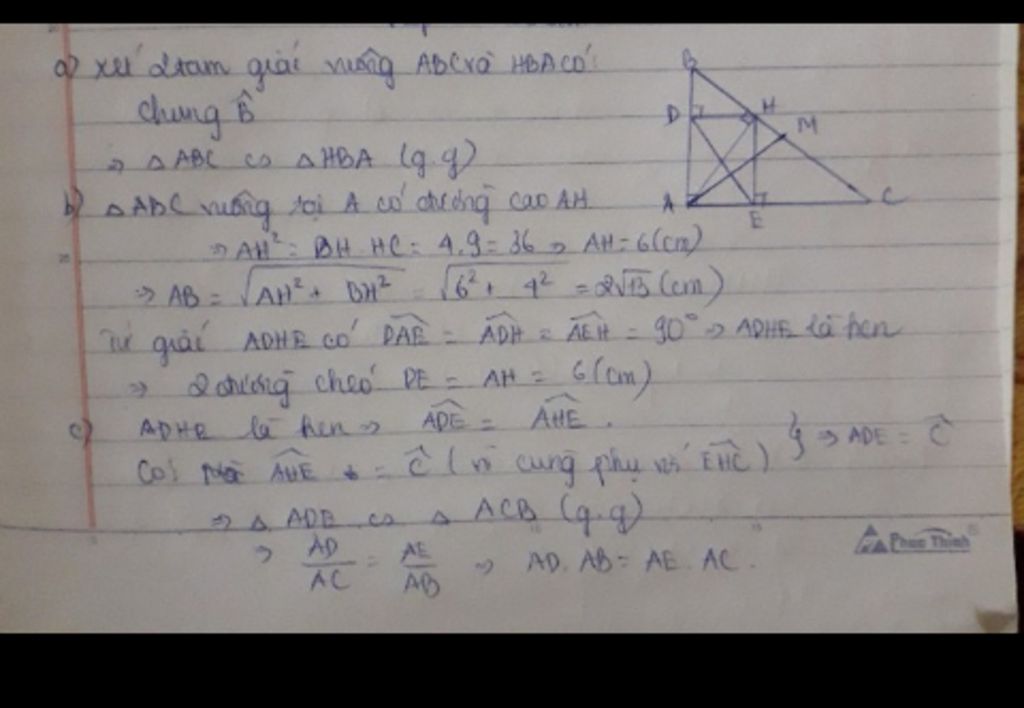 a) xét 2 tam giác vuông ABC và HBA có
B
chung B̂
D
H
M
⇒ △ ABC ∽ △ HBA (g.g)
b) △ ABC vuông tại A có đường cao AH
A
E
C
⇒ AH² = BH. HC = 4.9 = 36 ⇒ AH = 6 (cm)
⇒ AB = √(AH² + BH²) = √(6² + 4²) = 2√13 (cm)
Tứ giác ADHE có DAE = ADH = AEH = 90° ⇒ ADHE là hcn
⇒ 2 đường chéo DE = AH = 6 (cm)
c) ADHE là hcn ⇒ ADE = AHE.
Có AHE = Ĉ (vì cùng phụ với EHC) } ⇒ ADE = Ĉ
⇒ △ ADE ∽ △ ACB (g.g)
⇒ AD/AC = AE/AB ⇒ AD. AB = AE. AC.
Phuc Thinh